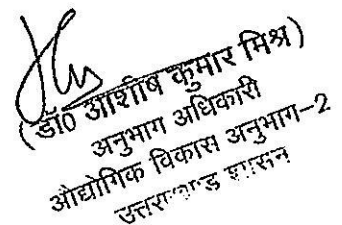 (डॉ0 आशीष कुमार मिश्र)
अनुभाग अधिकारी
औद्योगिक विकास अनुभाग-2
उत्तराखण्ड शासन